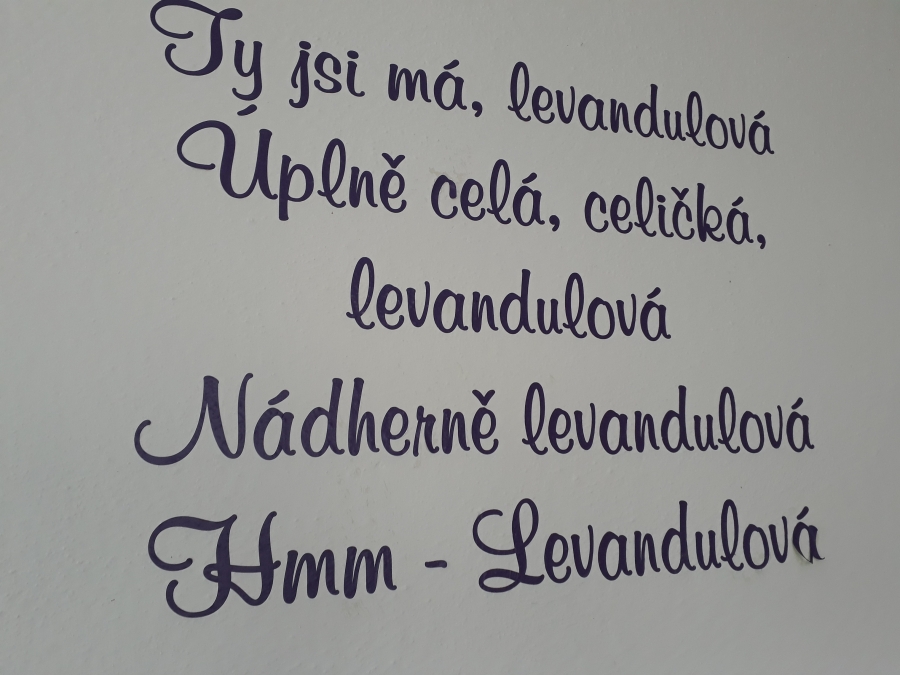 Ty jsi má, levandulová
Úplně celá, celičká,
levandulová
Nádherně levandulová
Hmm - Levandulová